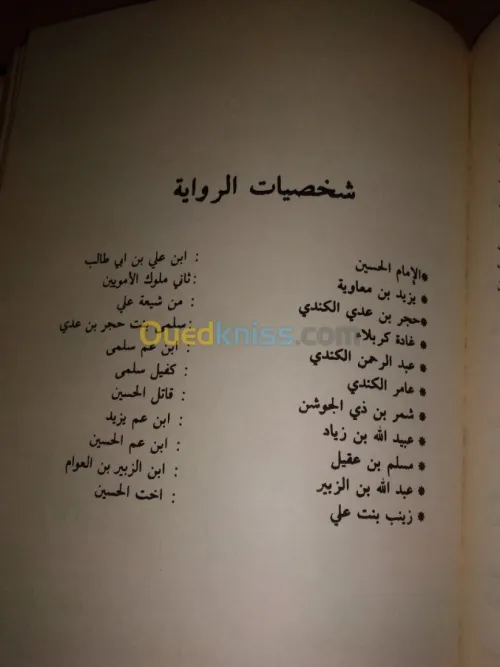 شخصيات الرواية
*الإمام الحسين : ابن علي بن ابي طالب
* يزيد بن معاوية : ثاني ملوك الأمويين
*حجر بن عدي الكندي : من شيعة علي
* غادة كربلاء : سلمى بنت حجر بن عدي
* عبد الرحمن الكندي : ابن عم سلمى
* عامر الكندي : كفيل سلمى
* شمر بن ذي الجوشن : قاتل الحسين
* عبيد الله بن زياد : ابن عم يزيد
* مسلم بن عقيل : ابن عم الحسين
* عبد الله بن الزبير : ابن الزبير بن العوام
* زينب بنت علي : اخت الحسين
Ouedkniss.com